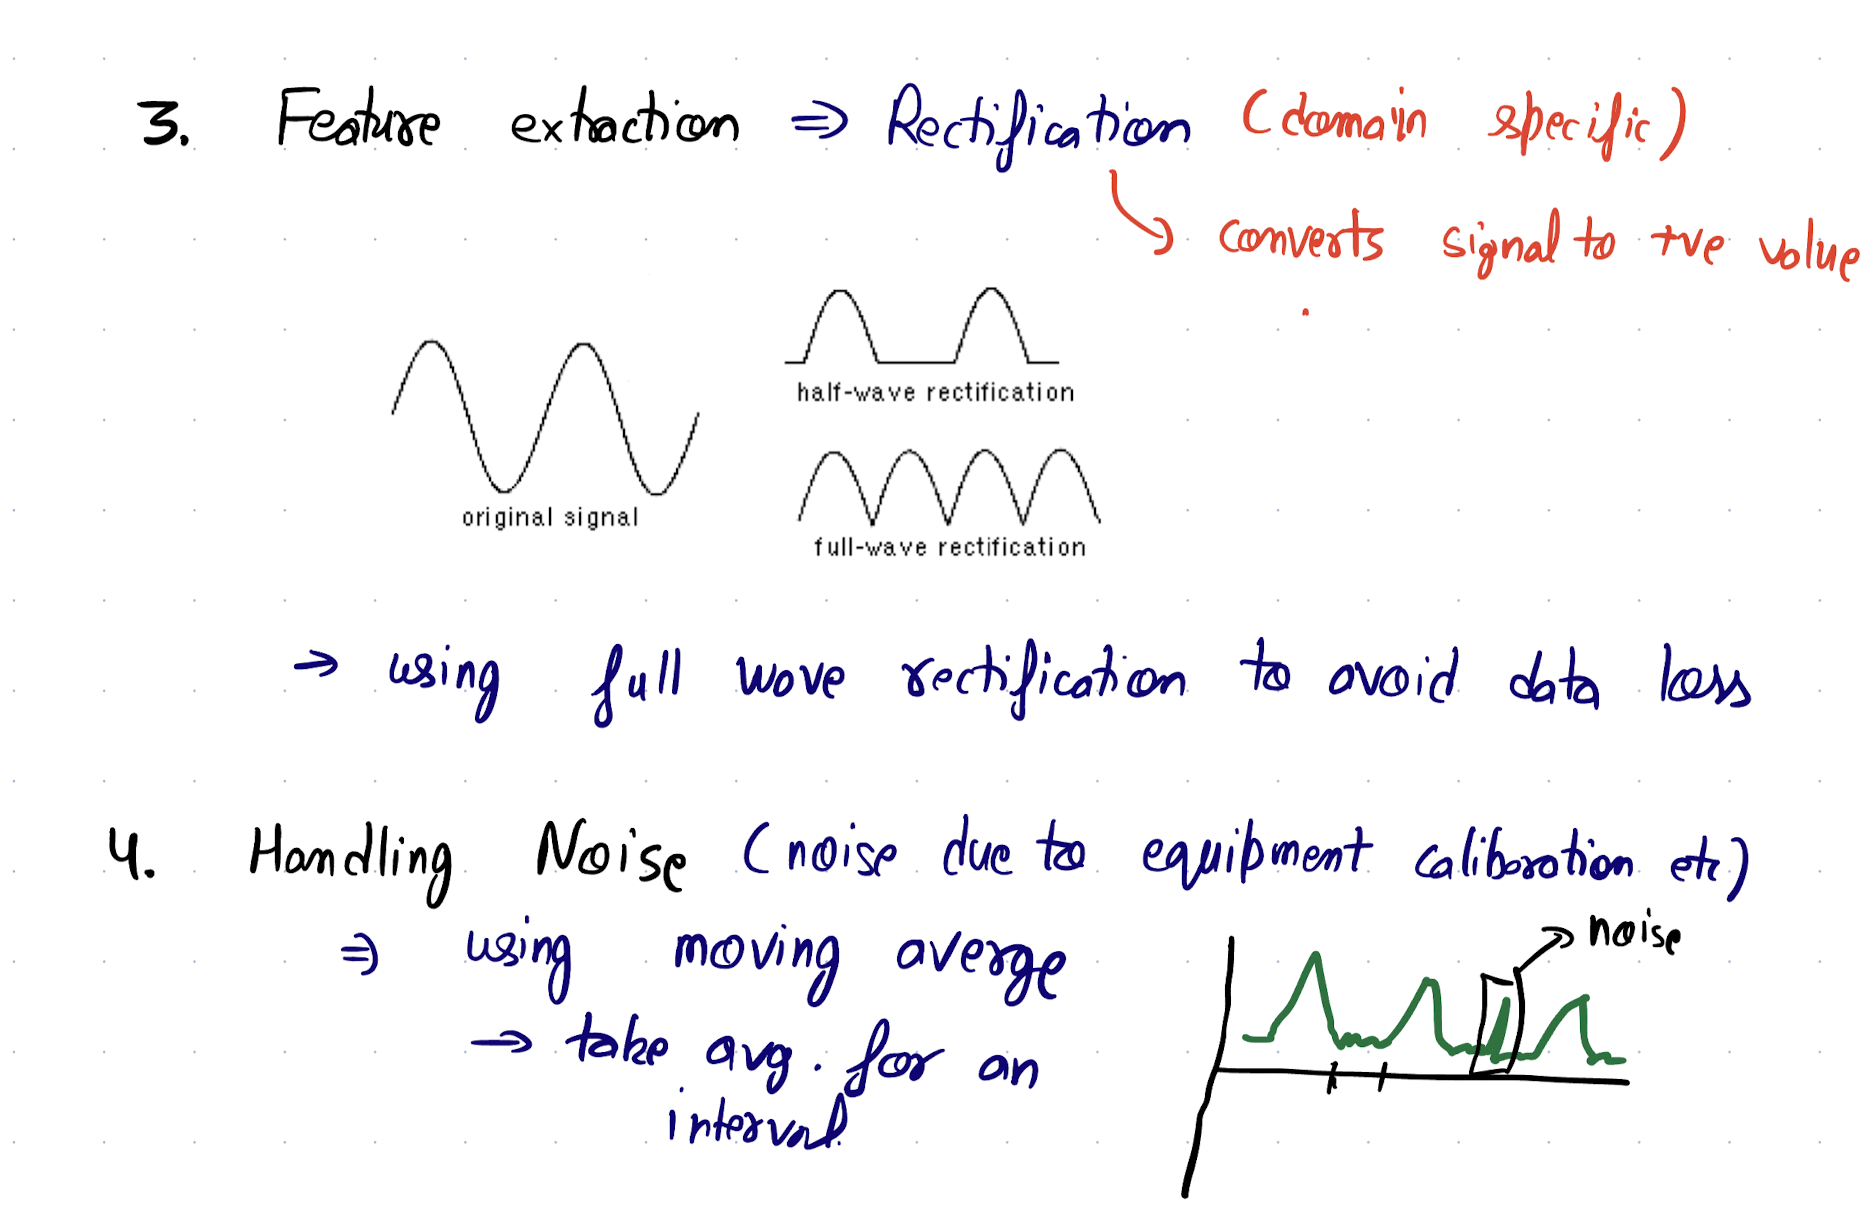 3. Feature extraction ⇒ Rectification (domain specific)
↳ converts signal to +ve value
half-wave rectification
original signal
full-wave rectification
→ using full wave rectification to avoid data loss
4. Handling Noise (noise due to equipment caliboration etc)
→ noise
⇒ using moving averge
→ take avg. for an
interval